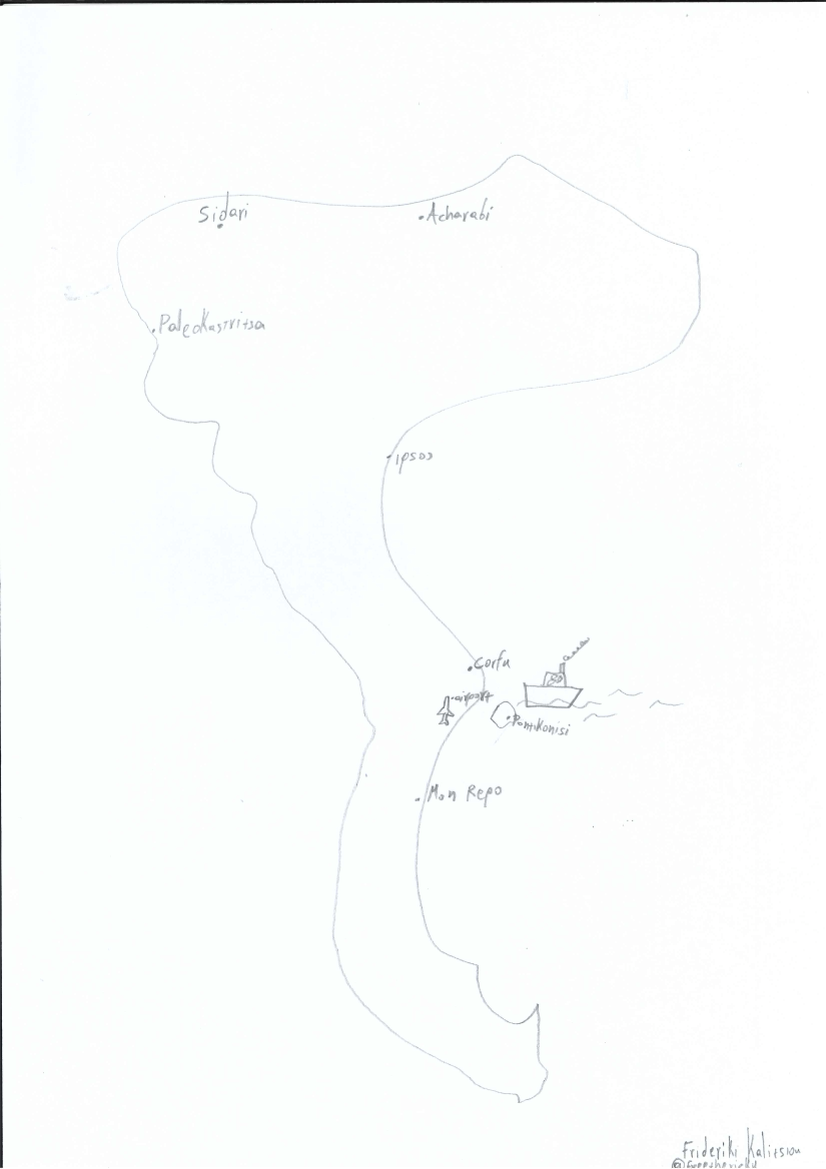 Sidari
Acharabi
Paleokastritsa
ipsos
Corfu
airport
Pontikonisi
Mon Repo
Frideriki Kalitsiou